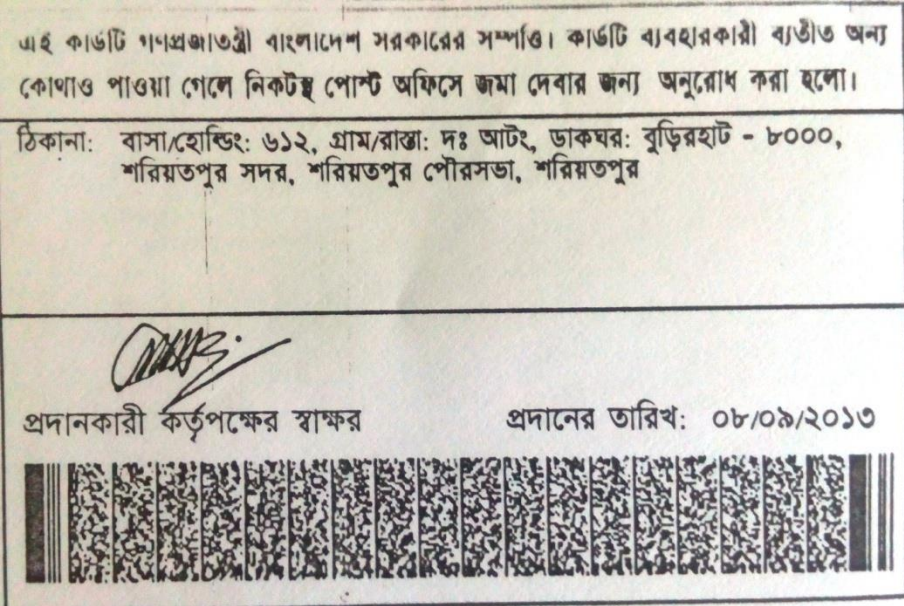 এই কার্ডটি গণপ্রজাতন্ত্রী বাংলাদেশ সরকারের সম্পত্তি। কার্ডটি ব্যবহারকারী ব্যতীত অন্য
কোথাও পাওয়া গেলে নিকটস্থ পোস্ট অফিসে জমা দেবার জন্য অনুরোধ করা হলো।
ঠিকানা: বাসা/হোল্ডিং: ৬১২, গ্রাম/রাস্তা: দঃ আটং, ডাকঘর: বুড়িরহাট - ৮০০০,
শরিয়তপুর সদর, শরিয়তপুর পৌরসভা, শরিয়তপুর
প্রদানকারী কর্তৃপক্ষের স্বাক্ষর প্রদানের তারিখ: ০৮/০৯/২০১৩